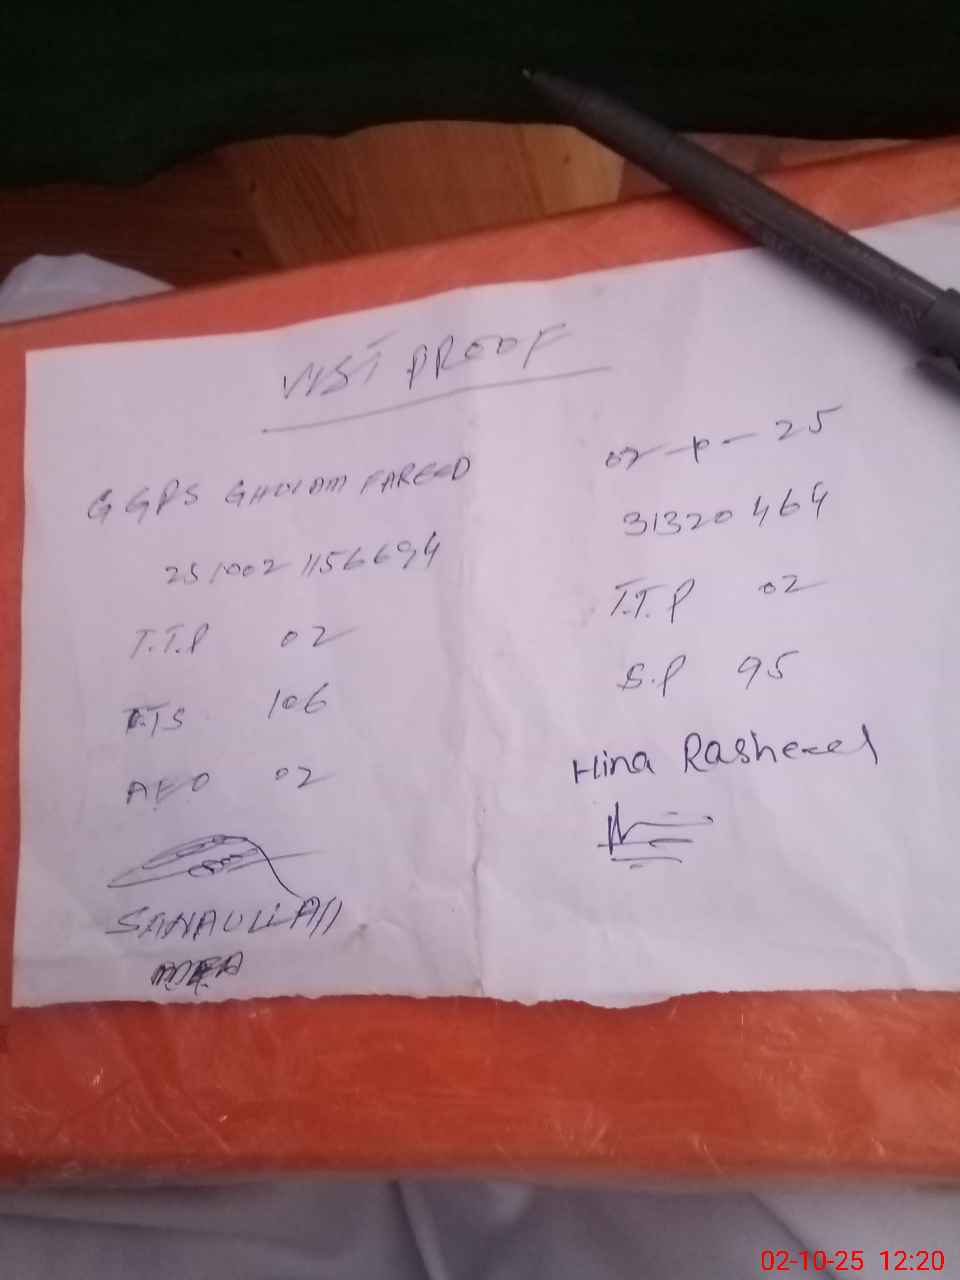 VIST PROOF
G GPS GHULAM FAREED
02-10-25
251002 1156694
31320464
T.T.P 02
T.T.P 02
T.T.S 106
S.P 95
AEO 02
Hina Rasheed
SANAULLAH
02-10-25 12:20